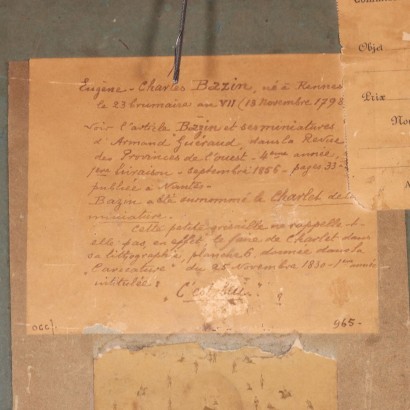 Eugène-Charles Bazin, né à Rennes
le 23 brumaire an VII (13 Novembre 1798
Voir l'article Bazin et ses miniatures
d'Armand Guéraud, dans la Revue
des Provinces de l'ouest - 4ème année,
1ère livraison - septembre 1856 - pages 33-
publiée à Nantes.
Bazin a été surnommé le Charlet de la
miniature.
Cette petite grisaille ne rappelle-t-
elle pas, en effet, le faire de Charlet dans
sa lithographie, planche 6, donnée dans la
"Caricature" du 25 Novembre 1830 - 1ère année
intitulée :
"C'est
?
965-
Objet
Prix